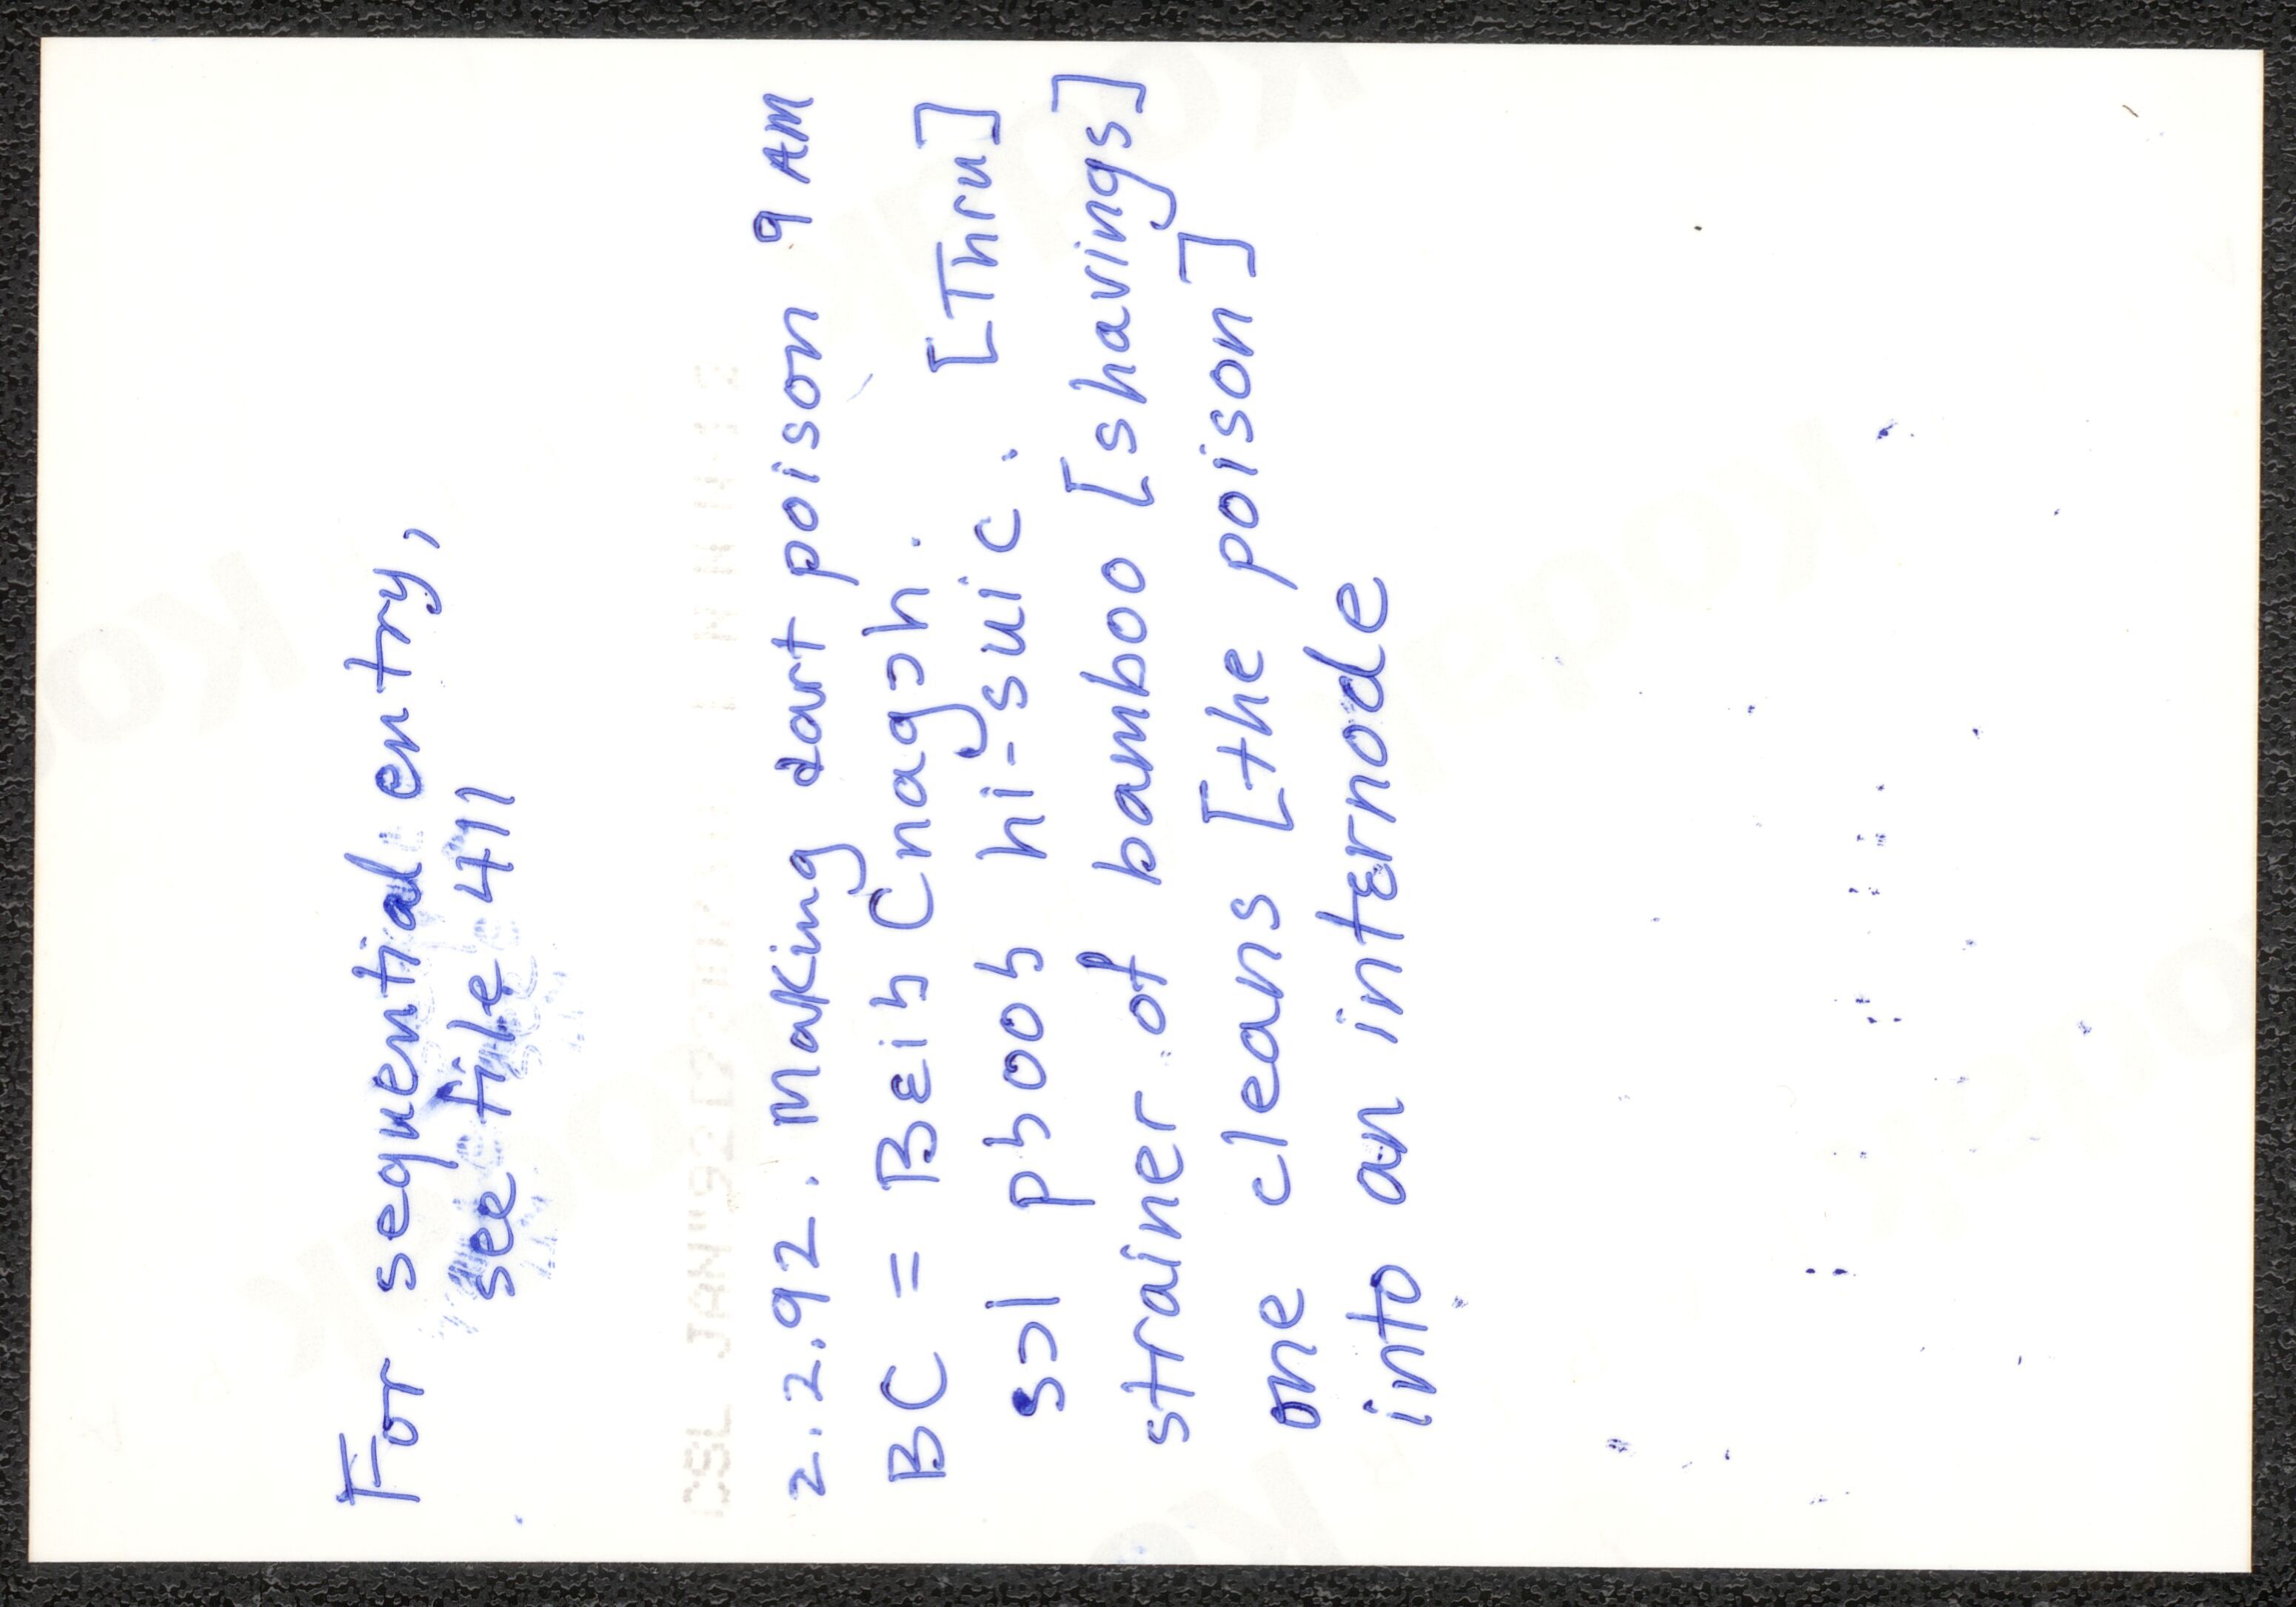 For sequential entry,
see file 411
2.2.92. Making dart poison 9 AM
BC = Bɛiɦ Cnagɔh.
sɔl pɦooɦ hi-suic. [Thru]
strainer of bamboo [shavings]
one cleans [the poison]
into an internode